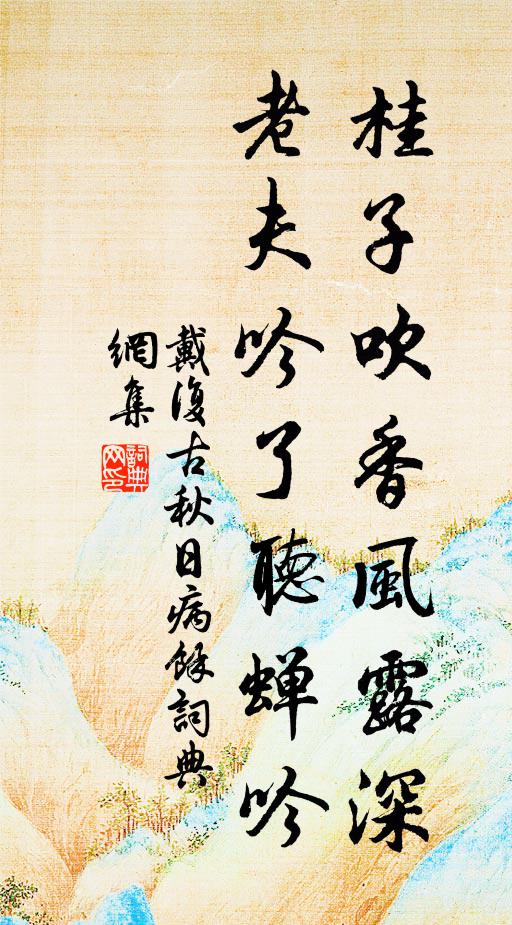 桂子吹香風露深
老夫吟了聽蟬吟
戴復古秋日病餘詞典
網集
詞典
网印